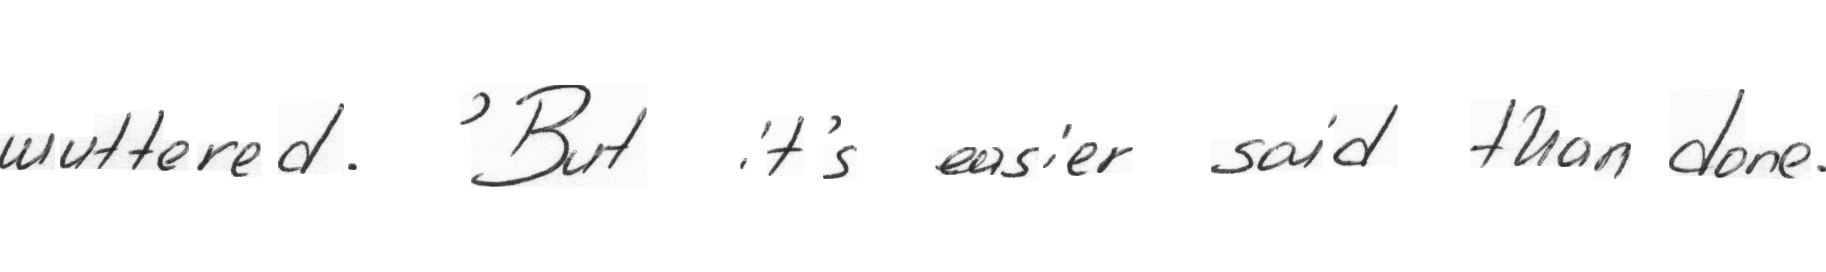 muttered. 'But it's easier said than done.